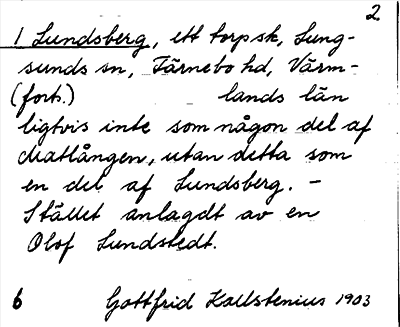 2
1 Lundsberg, ett torpsk, Lung-
sunds sn, Färnebo hd, Värm-
(forts.) lands län
ligtvis inte som någon del af
Matlången, utan detta som
en del af Lundsberg. –
Stället anlagdt av en
Olof Lundstedt.
6 Gottfrid Kallstenius 1903